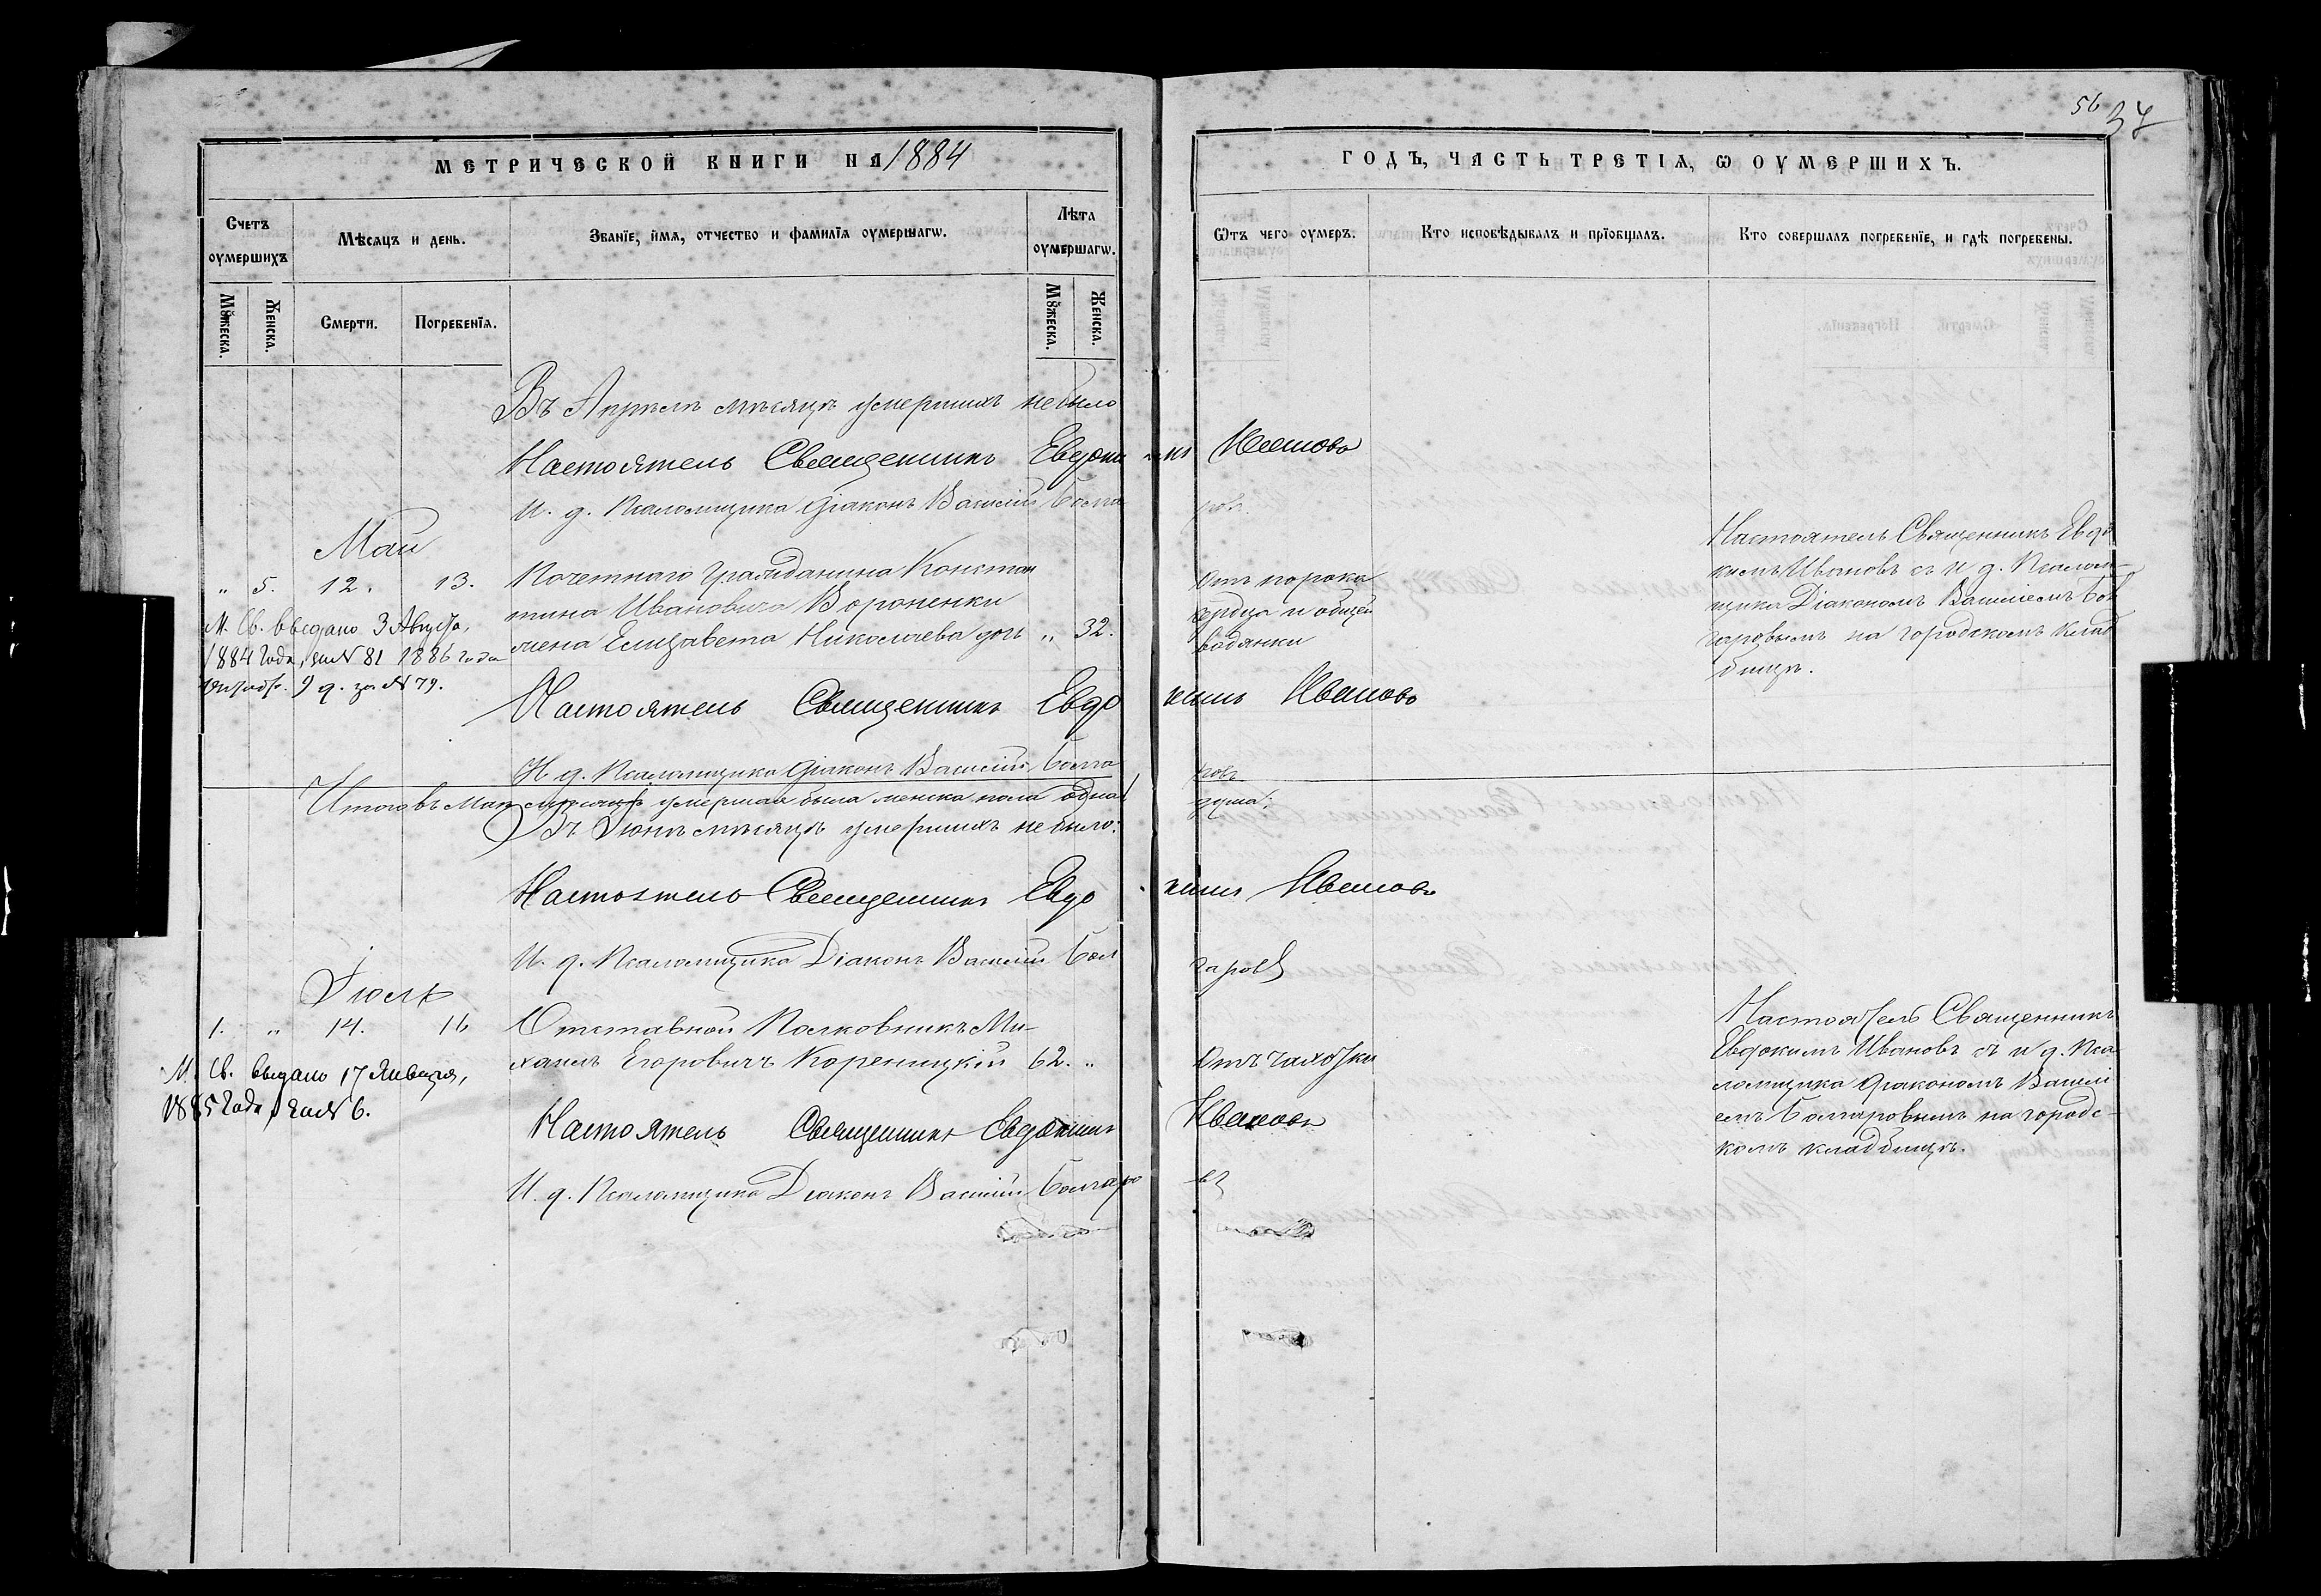 56
37
МЕТРИЧЕСКОЙ КНИГИ НА 1884
ГОДЪ, ЧАСТЬ ТРЕТІѦ, Ѡ ОУМЕРШИХЪ.
Счетъ оумершихъ
Мѣсяцъ и день.
Званіе, имя, отчество и фамилія оумершагѡ.
Лѣта оумершагѡ.
Ѿтъ чего оумеръ.
Кто исповѣдывалъ и пріобщалъ.
Кто совершалъ погребеніе, и гдѣ погребены.
Мꙋжеска.
Женска.
Смерти.
Погребенія.
Мꙋжеска.
Женска.
Въ Апрѣлѣ мѣсяцѣ умершихъ небыло
Настоятель Священникъ Евдокимъ Ивановъ
И. д. Псаломщика Діаконъ Василій Болгаровъ.
Май
„ 5. 12. 13.
Почетнаго Гражданина Констан
тина Ивановича Вороненки
жена Елизавета Николаева дочь „ 32.
Отъ порока
сердца и общей
водянки
Настоятель Священникъ Евдо
кимъ Ивановъ съ и д. Псалом-
щика Діакономъ Василіемъ Бол
гаровымъ на городскомъ клад
бищѣ.
М. Св. выдано 3 Августа,
1884 года, за № 81 1886 года
9 д. за № 79.
Настоятель Священникъ Евдокимъ Ивановъ
И д. Псаломщика Діаконъ Василій Болгаровъ
Итого въ Маѣ мѣсяцѣ умершая была женска пола одна душа.
Въ Іюнѣ мѣсяцѣ умершихъ небыло.
Настоятель Священникъ Евдокимъ Ивановъ
И. д. Псаломщика Діаконъ Василій Болгаровъ
Іюль
1. „ 14. 16
Отставной Полковникъ Ми-
хаилъ Егоровичъ Кореницкій 62. „
Отъ чахотки
Настоятель Священникъ
Евдокимъ Ивановъ съ и д. Пса
ломщика Діакономъ Васілі
емъ Болгаровымъ на городс-
комъ кладбищѣ.
М. Св. выдано 17 Января,
1885 года, за № 6.
Настоятель Священникъ Евдокимъ Ивановъ
И. д. Псаломщика Діаконъ Василій Болгаровъ